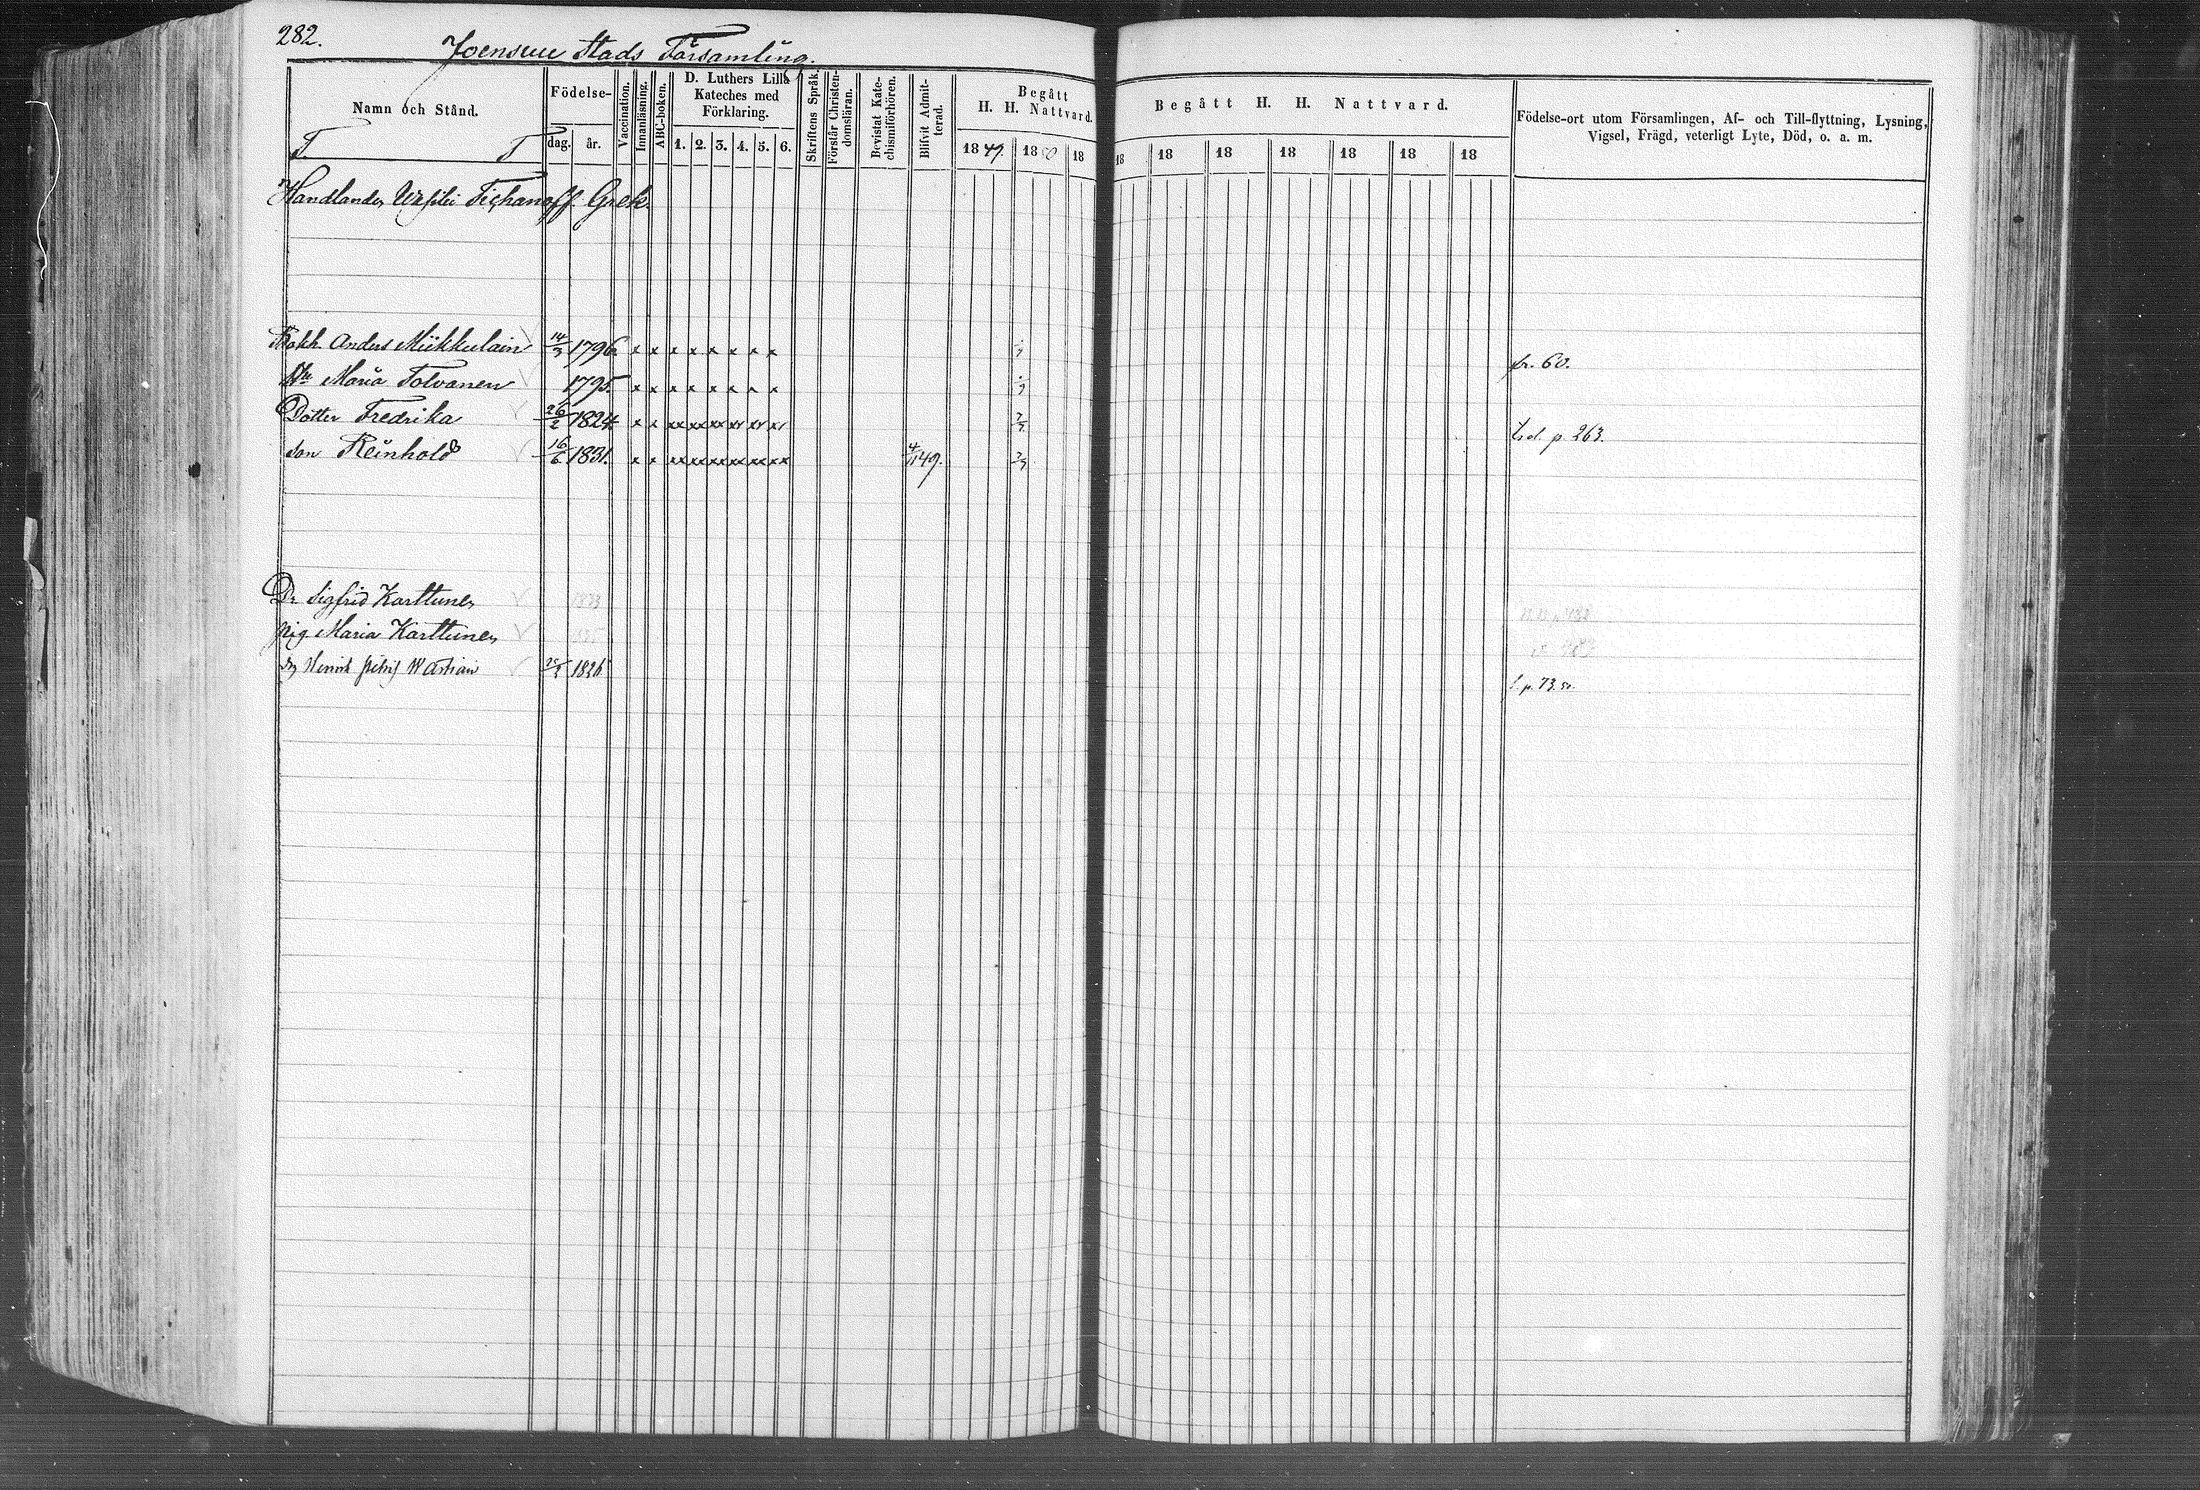 282.
Joensuu Stads Församling.
Namn och Stånd.
T. T
Födelse-
dag. år.
Vaccination.
Innanläsning.
ABC-boken.
D. Luthers Lilla
Kateches med
Förklaring.
1. 2. 3. 4. 5. 6.
Skriftens Språk.
Förstår Christen-
domsläran.
Bevistat Kate-
chismiförhören.
Blifvit Admit-
terad.
Begått
H. H. Nattvard.
1849. 1850 18
Begått H. H. Nattvard.
18 18 18 18 18 18 18
Födelse-ort utom Församlingen, Af- och Till-flyttning, Lysning,
Vigsel, Frägd, veterligt Lyte, Död, o. a. m.
Handlanden Wasilei Tichanoff. Grek.
Bokh. Anders Miikkulain 14/3 1796. x x x x x x x x fr. 60.
Maria Tolvanen 1795. x x x x x x x x
Dotter Fredrika 26/2 1824. x x xx xx xx xx xx xx p. 263.
Son Reinhold 16/6 1831. x x xx xx xx xx xx xx 4/11 49.
Dr Sigfrid Karttunen
pig Maria Karttunen
Henrik 1826
p. 73.